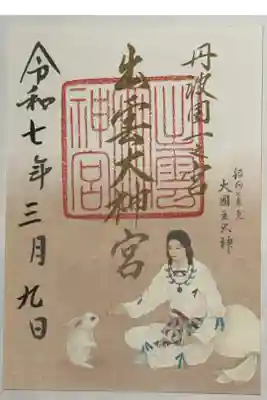 丹波國一之宮
出雲大神宮
出雲
神宮
大國主大神
令和七年三月九日